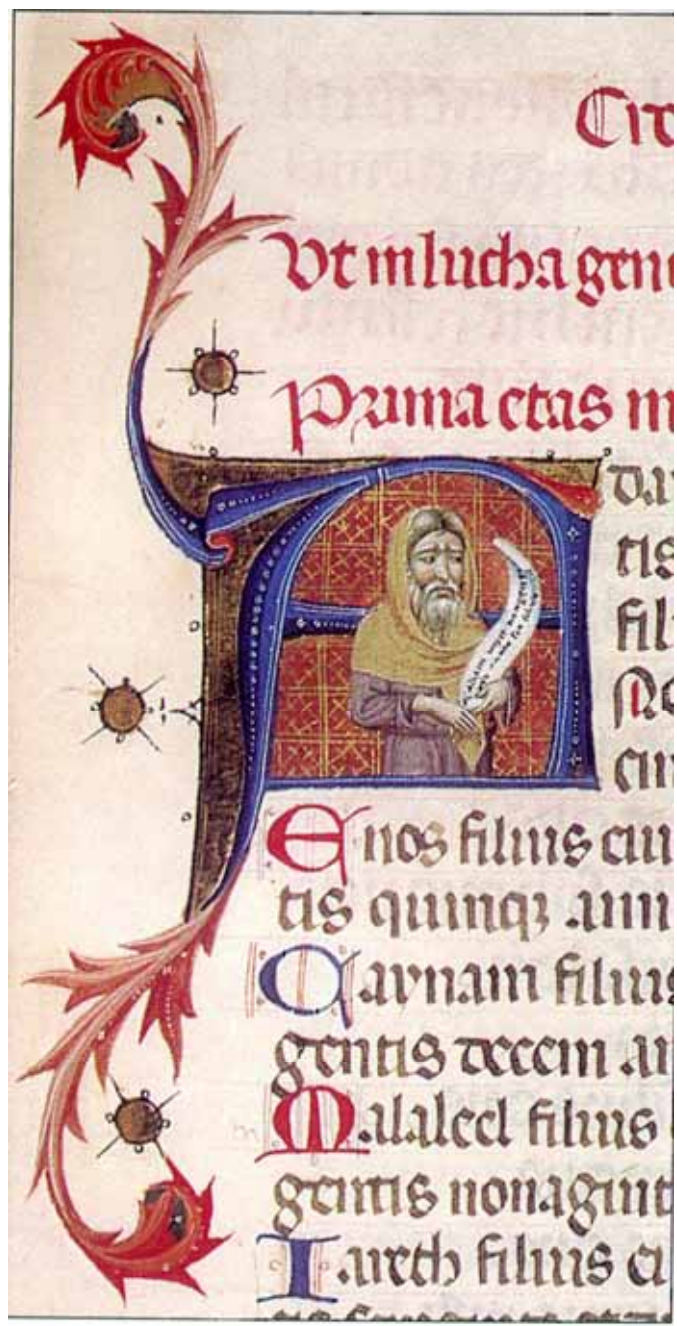 Cir
Vt in lucha gene
Prima etas in
A dam
tis
fil
No
cin
Enos filius cui
tis quinqꝫ .ann
Caynam filius
gentis decem .an
Malaleel filius
gentis nonagint
Iareth filius ci